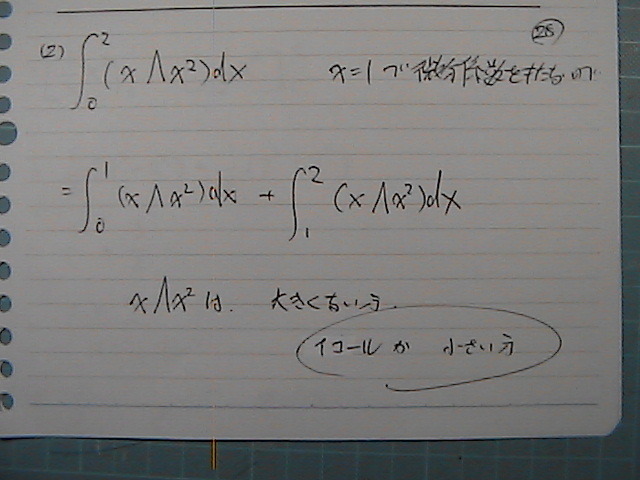 (28)
(2) ∫₀² (x ∧ x²)dx x=1 で 微分係数をもたないので
= ∫₀¹ (x ∧ x²)dx + ∫₁² (x ∧ x²)dx
x ∧ x² は. 大きくない方.
イコール か 小さい方